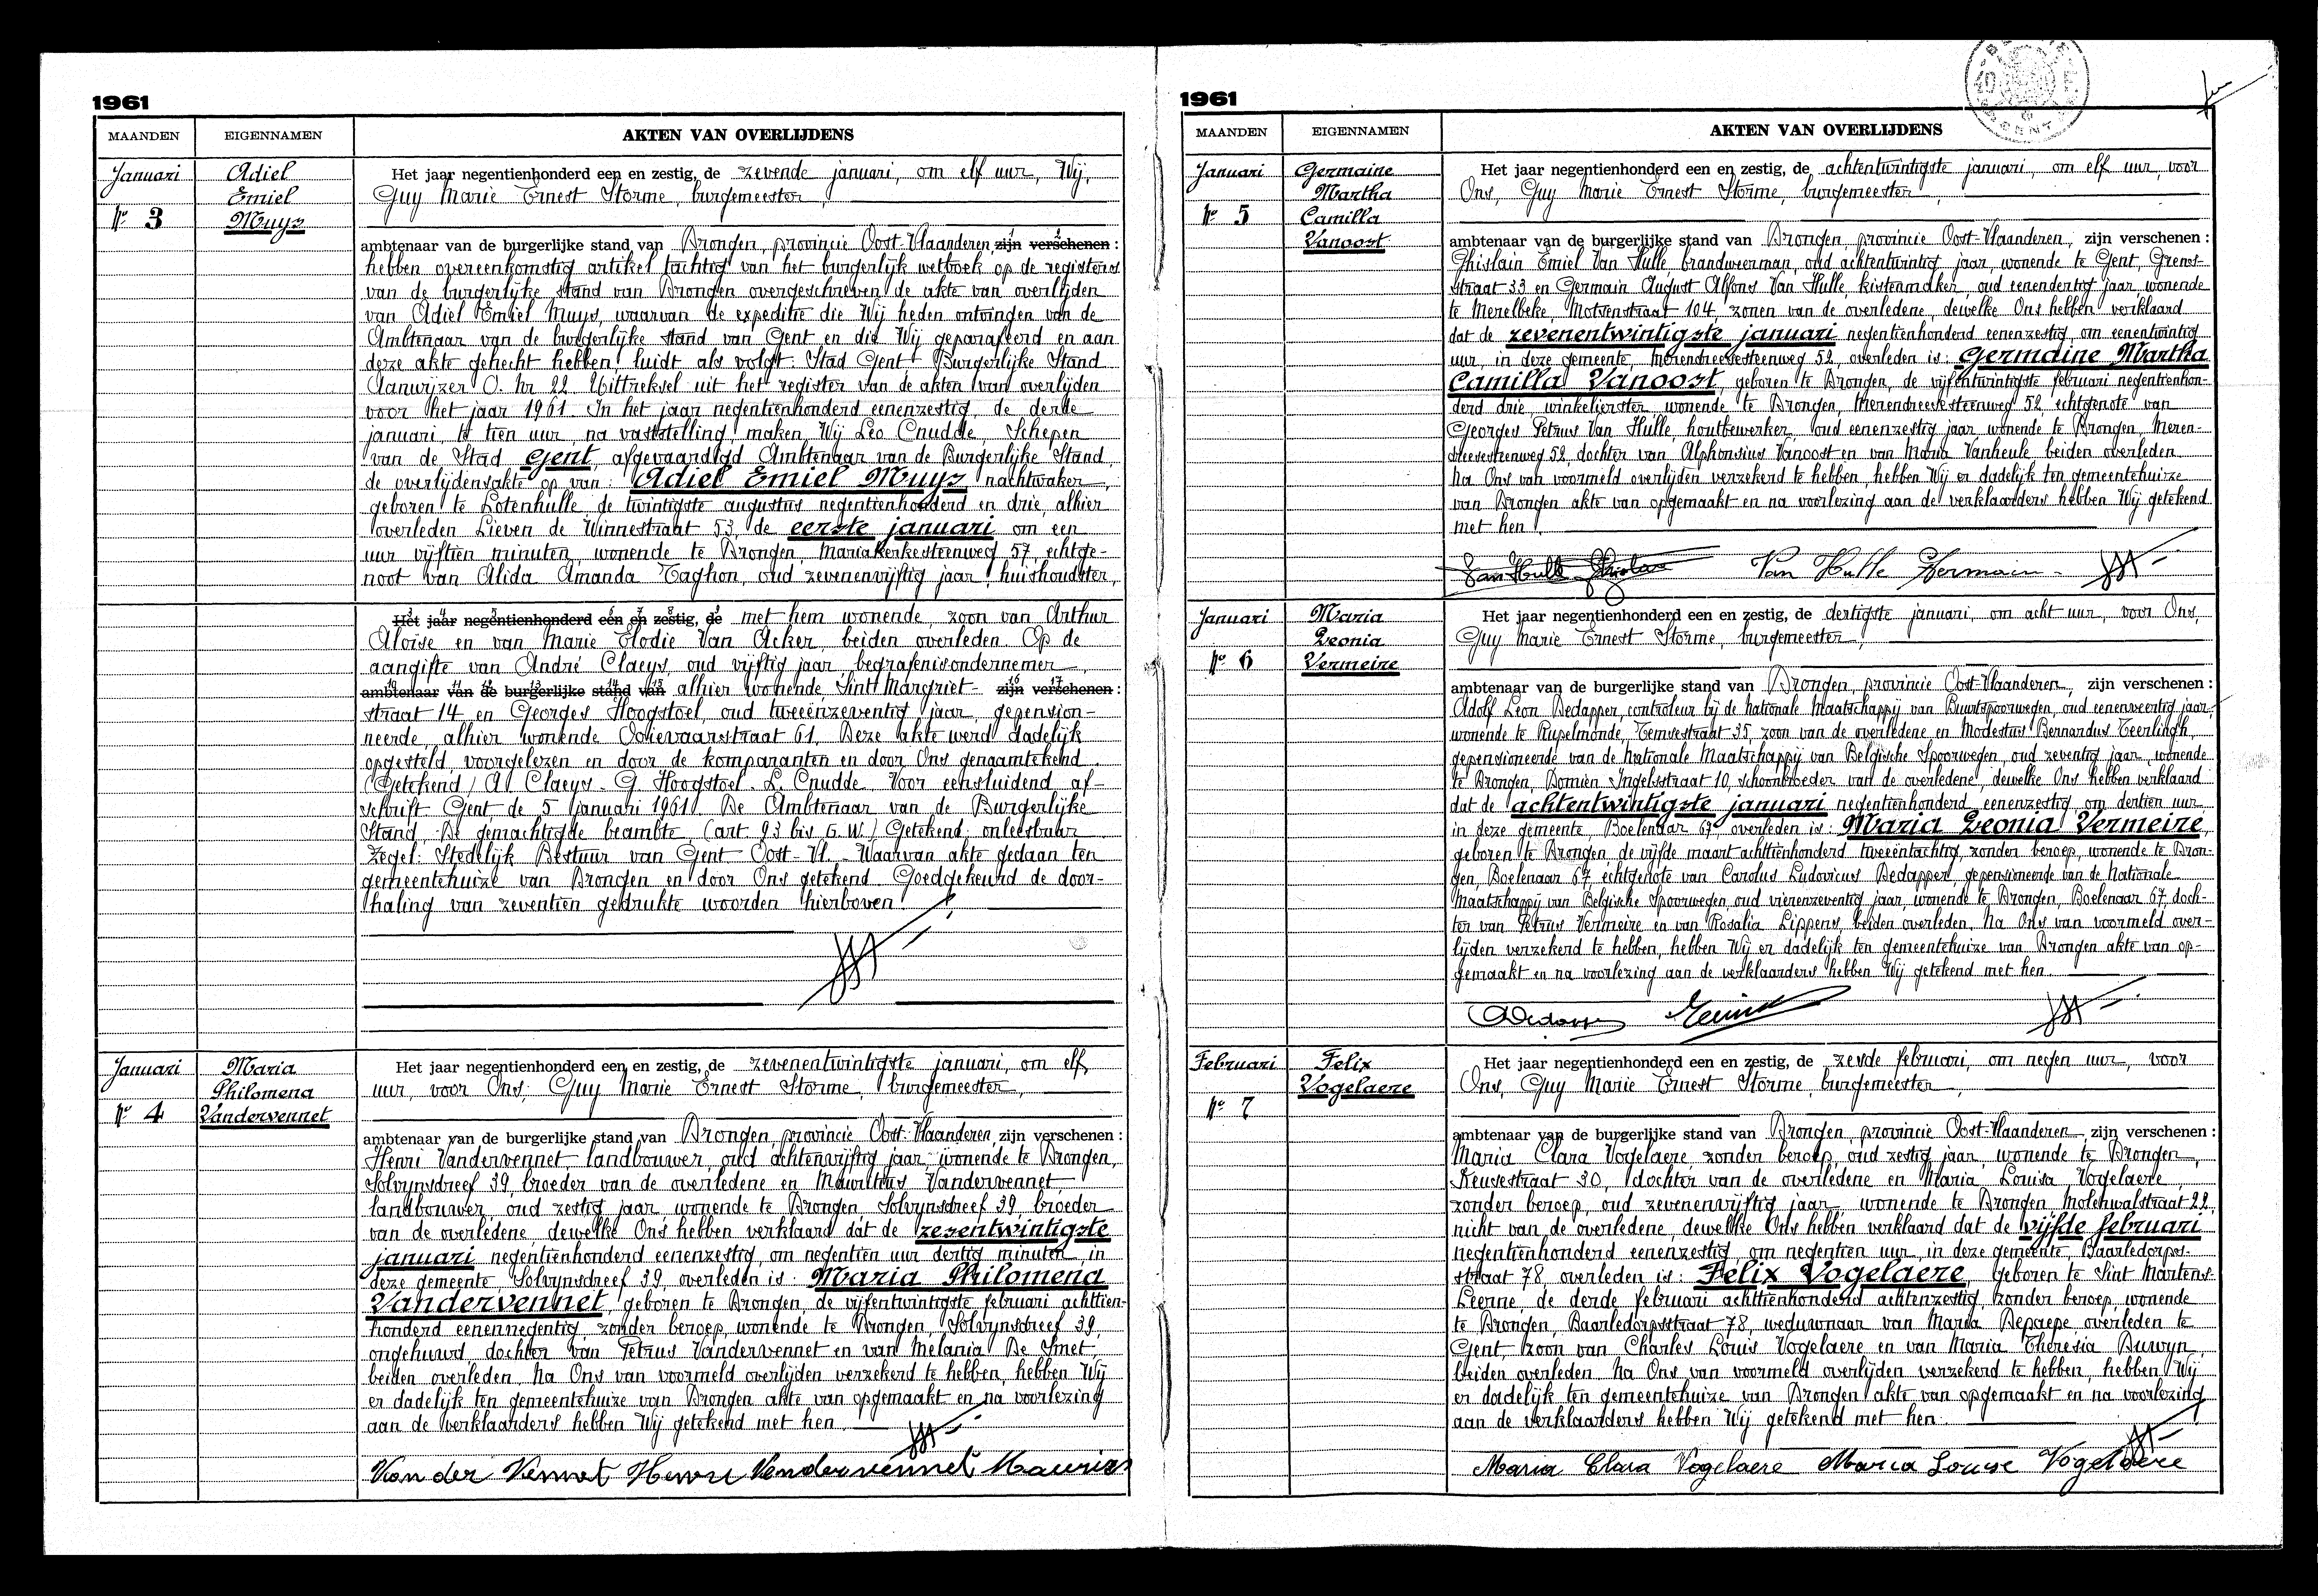 1961
MAANDEN EIGENNAMEN AKTEN VAN OVERLIJDENS
Januari
N° 3
Adiel
Emiel
Muys
Het jaar negentienhonderd een en zestig, de zevende januari, om elf uur, Wij,
Guy Marie Ernest Storme, burgemeester,
ambtenaar van de burgerlijke stand van Drongen, provincie Oost-Vlaanderen, zijn verschenen:
hebben overeenkomstig artikel tachtig van het burgerlijk wetboek op de registers
van de burgerlijke stand van Drongen overgeschreven de akte van overlijden
van Adiel Emiel Muys, waarvan de expeditie die Wij heden ontvingen van de
Ambtenaar van de burgerlijke stand van Gent en die Wij geparafeerd en aan
deze akte gehecht hebben, luidt als volgt: Stad Gent - Burgerlijke Stand
Aanwijzer O. nr 22 Uittreksel uit het register van de akten van overlijden
voor het jaar 1961. In het jaar negentienhonderd eenenzestig, de derde
januari, te tien uur, na vaststelling, maken Wij Leo Cnudde, Schepen
van de Stad Gent, afgevaardigd Ambtenaar van de Burgerlijke Stand,
de overlijdensakte op van: Adiel Emiel Muys nachtwaker,
geboren te Lotenhulle, de twintigste augustus negentienhonderd en drie, alhier
overleden Lieven de Winnestraat 53, de eerste januari om een
uur vijftien minuten, wonende te Drongen, Mariakerkesteenweg 57, echtge-
noot van Alida Amanda Taghon, oud zevenenvijftig jaar, huishoudster,
Het jaar negentienhonderd een en zestig, de met hem wonende, zoon van Arthur
Aloïse en van Marie Elodie Van Acker, beiden overleden. Op de
aangifte van André Claeys, oud vijftig jaar, begrafenisondernemer
ambtenaar van de burgerlijke stand van alhier wonende, Sint Margriet- zijn verschenen:
straat 14 en Georges Hoogstoel, oud tweeënzeventig jaar, gepension-
neerde, alhier wonende Ooievaarstraat 61. Deze akte werd dadelijk
opgesteld, voorgelezen en door de komparanten en door Ons genaamtekend.
(Getekend) A. Claeys - G. Hoogstoel - L. Cnudde. Voor eensluidend af-
schrift. Gent, de 5 januari 1961. De Ambtenaar van de Burgerlijke
Stand, De gemachtigde beambte (art. 93 bis G.W.) Getekend: onleesbaar
Zegel: Stedelijk Bestuur van Gent - Oost-Vl. - Waarvan akte gedaan ten
gemeentehuize van Drongen en door Ons getekend. Goedgekeurd de door-
haling van zeventien gedrukte woorden hierboven.
Januari
N° 4
Maria
Philomena
Vandervennet
Het jaar negentienhonderd een en zestig, de zevenentwintigste januari, om elf
uur, voor Ons, Guy Marie Ernest Storme, burgemeester,
ambtenaar van de burgerlijke stand van Drongen, provincie Oost-Vlaanderen, zijn verschenen:
Henri Vandervennet, landbouwer, oud achtenvijftig jaar, wonende te Drongen,
Solvynsdreef 39, broeder van de overledene en Mauritius Vandervennet,
landbouwer, oud zestig jaar, wonende te Drongen Solvynsdreef 39, broeder
van de overledene, dewelke Ons hebben verklaard dat de zesentwintigste
januari negentienhonderd eenenzestig, om negentien uur dertig minuten, in
deze gemeente, Solvynsdreef 39, overleden is: Maria Philomena
Vandervennet, geboren te Drongen, de vijfentwintigste februari achttien-
honderd eenennegentig, zonder beroep, wonende te Drongen, Solvynsdreef 39,
ongehuwd, dochter van Petrus Vandervennet en van Melania De Smet,
beiden overleden. Na Ons van voormeld overlijden verzekerd te hebben, hebben Wij
er dadelijk ten gemeentehuize van Drongen akte van opgemaakt en na voorlezing
aan de verklaarders hebben Wij getekend met hen.
Van der Vennet Henri Vandervennet Maurits
1961
MAANDEN EIGENNAMEN AKTEN VAN OVERLIJDENS
Januari
N° 5
Germaine
Martha
Camilla
Vanoost
Het jaar negentienhonderd een en zestig, de achtentwintigste januari, om elf uur, voor
Ons, Guy Marie Ernest Storme, burgemeester,
ambtenaar van de burgerlijke stand van Drongen, provincie Oost-Vlaanderen, zijn verschenen:
Ghislain Emiel Van Hulle, brandweerman, oud achtentwintig jaar, wonende te Gent, Grens-
straat 33 en Germain August Alfons Van Hulle, kistenmaker, oud eenendertig jaar, wonende
te Merelbeke, Motsenstraat 104, zonen van de overledene, dewelke Ons hebben verklaard
dat de zevenentwintigste januari negentienhonderd eenenzestig, om eenentwintig
uur, in deze gemeente, Merendreesesteenweg 52, overleden is: Germaine Martha
Camilla Vanoost, geboren te Drongen, de vijfentwintigste februari negentienhon-
derd drie, winkelierster, wonende te Drongen, Merendreesesteenweg 52, echtgenote van
Georges Petrus Van Hulle, houtbewerker, oud eenenzestig jaar wonende te Drongen, Meren-
dreesesteenweg 52, dochter van Alphonsius Vanoost en van Maria Vanheule beiden overleden.
Na Ons van voormeld overlijden verzekerd te hebben, hebben Wij er dadelijk ten gemeentehuize
van Drongen akte van opgemaakt en na voorlezing aan de verklaarders hebben Wij getekend
met hen.
Van Hulle Ghislain Van Hulle Germain
Januari
N° 6
Maria
Leonia
Vermeire
Het jaar negentienhonderd een en zestig, de dertigste januari, om acht uur, voor Ons,
Guy Marie Ernest Storme, burgemeester,
ambtenaar van de burgerlijke stand van Drongen, provincie Oost-Vlaanderen, zijn verschenen:
Adolf Leon Dedapper, controleur bij de Nationale Maatschappij van Buurtspoorwegen, oud eenenveertig jaar,
wonende te Rupelmonde, Temsestraat 35, zoon van de overledene en Modestus Bernardus Teerlingh,
gepensioneerde van de Nationale Maatschappij van Belgische Spoorwegen, oud zeventig jaar, wonende
te Drongen, Domien Ingelsstraat 10, schoonbroeder van de overledene, dewelke Ons hebben verklaard
dat de achtentwintigste januari negentienhonderd eenenzestig, om dertien uur
in deze gemeente, Boelenaar 67 overleden is: Maria Leonia Vermeire,
geboren te Drongen, de vijfde maart achttienhonderd tweeëntachtig, zonder beroep, wonende te Dron-
gen, Boelenaar 67, echtgenote van Carolus Ludovicus Dedapper, gepensioneerde van de Nationale
Maatschappij van Belgische Spoorwegen, oud vierenzeventig jaar, wonende te Drongen, Boelenaar 67, doch-
ter van Petrus Vermeire en van Rosalia Lippens, beiden overleden. Na Ons van voormeld over-
lijden verzekerd te hebben, hebben Wij er dadelijk ten gemeentehuize van Drongen akte van op-
gemaakt en na voorlezing aan de verklaarders hebben Wij getekend met hen.
Februari
N° 7
Felix
Vogelaere
Het jaar negentienhonderd een en zestig, de zesde februari, om negen uur, voor
Ons, Guy Marie Ernest Storme, burgemeester,
ambtenaar van de burgerlijke stand van Drongen, provincie Oost-Vlaanderen, zijn verschenen:
Maria Clara Vogelaere, zonder beroep, oud zestig jaar, wonende te Drongen,
Keuzestraat 30, dochter van de overledene en Maria Louisa Vogelaere,
zonder beroep, oud zevenenvijftig jaar, wonende te Drongen Molenwalstraat 22,
nicht van de overledene, dewelke Ons hebben verklaard dat de vijfde februari
negentienhonderd eenenzestig, om negentien uur, in deze gemeente, Baarledorps-
straat 78, overleden is: Felix Vogelaere, geboren te Sint Martens-
Leerne, de derde februari achttienhonderd achtenzestig, zonder beroep, wonende
te Drongen, Baarledorpsstraat 78, weduwnaar van Maria Depaepe overleden te
Gent, zoon van Charles Louis Vogelaere en van Maria Theresia Duwyn,
beiden overleden. Na Ons van voormeld overlijden verzekerd te hebben, hebben Wij
er dadelijk ten gemeentehuize van Drongen akte van opgemaakt en na voorlezing
aan de verklaarders hebben Wij getekend met hen.
Maria Clara Vogelaere Maria Louise Vogelaere